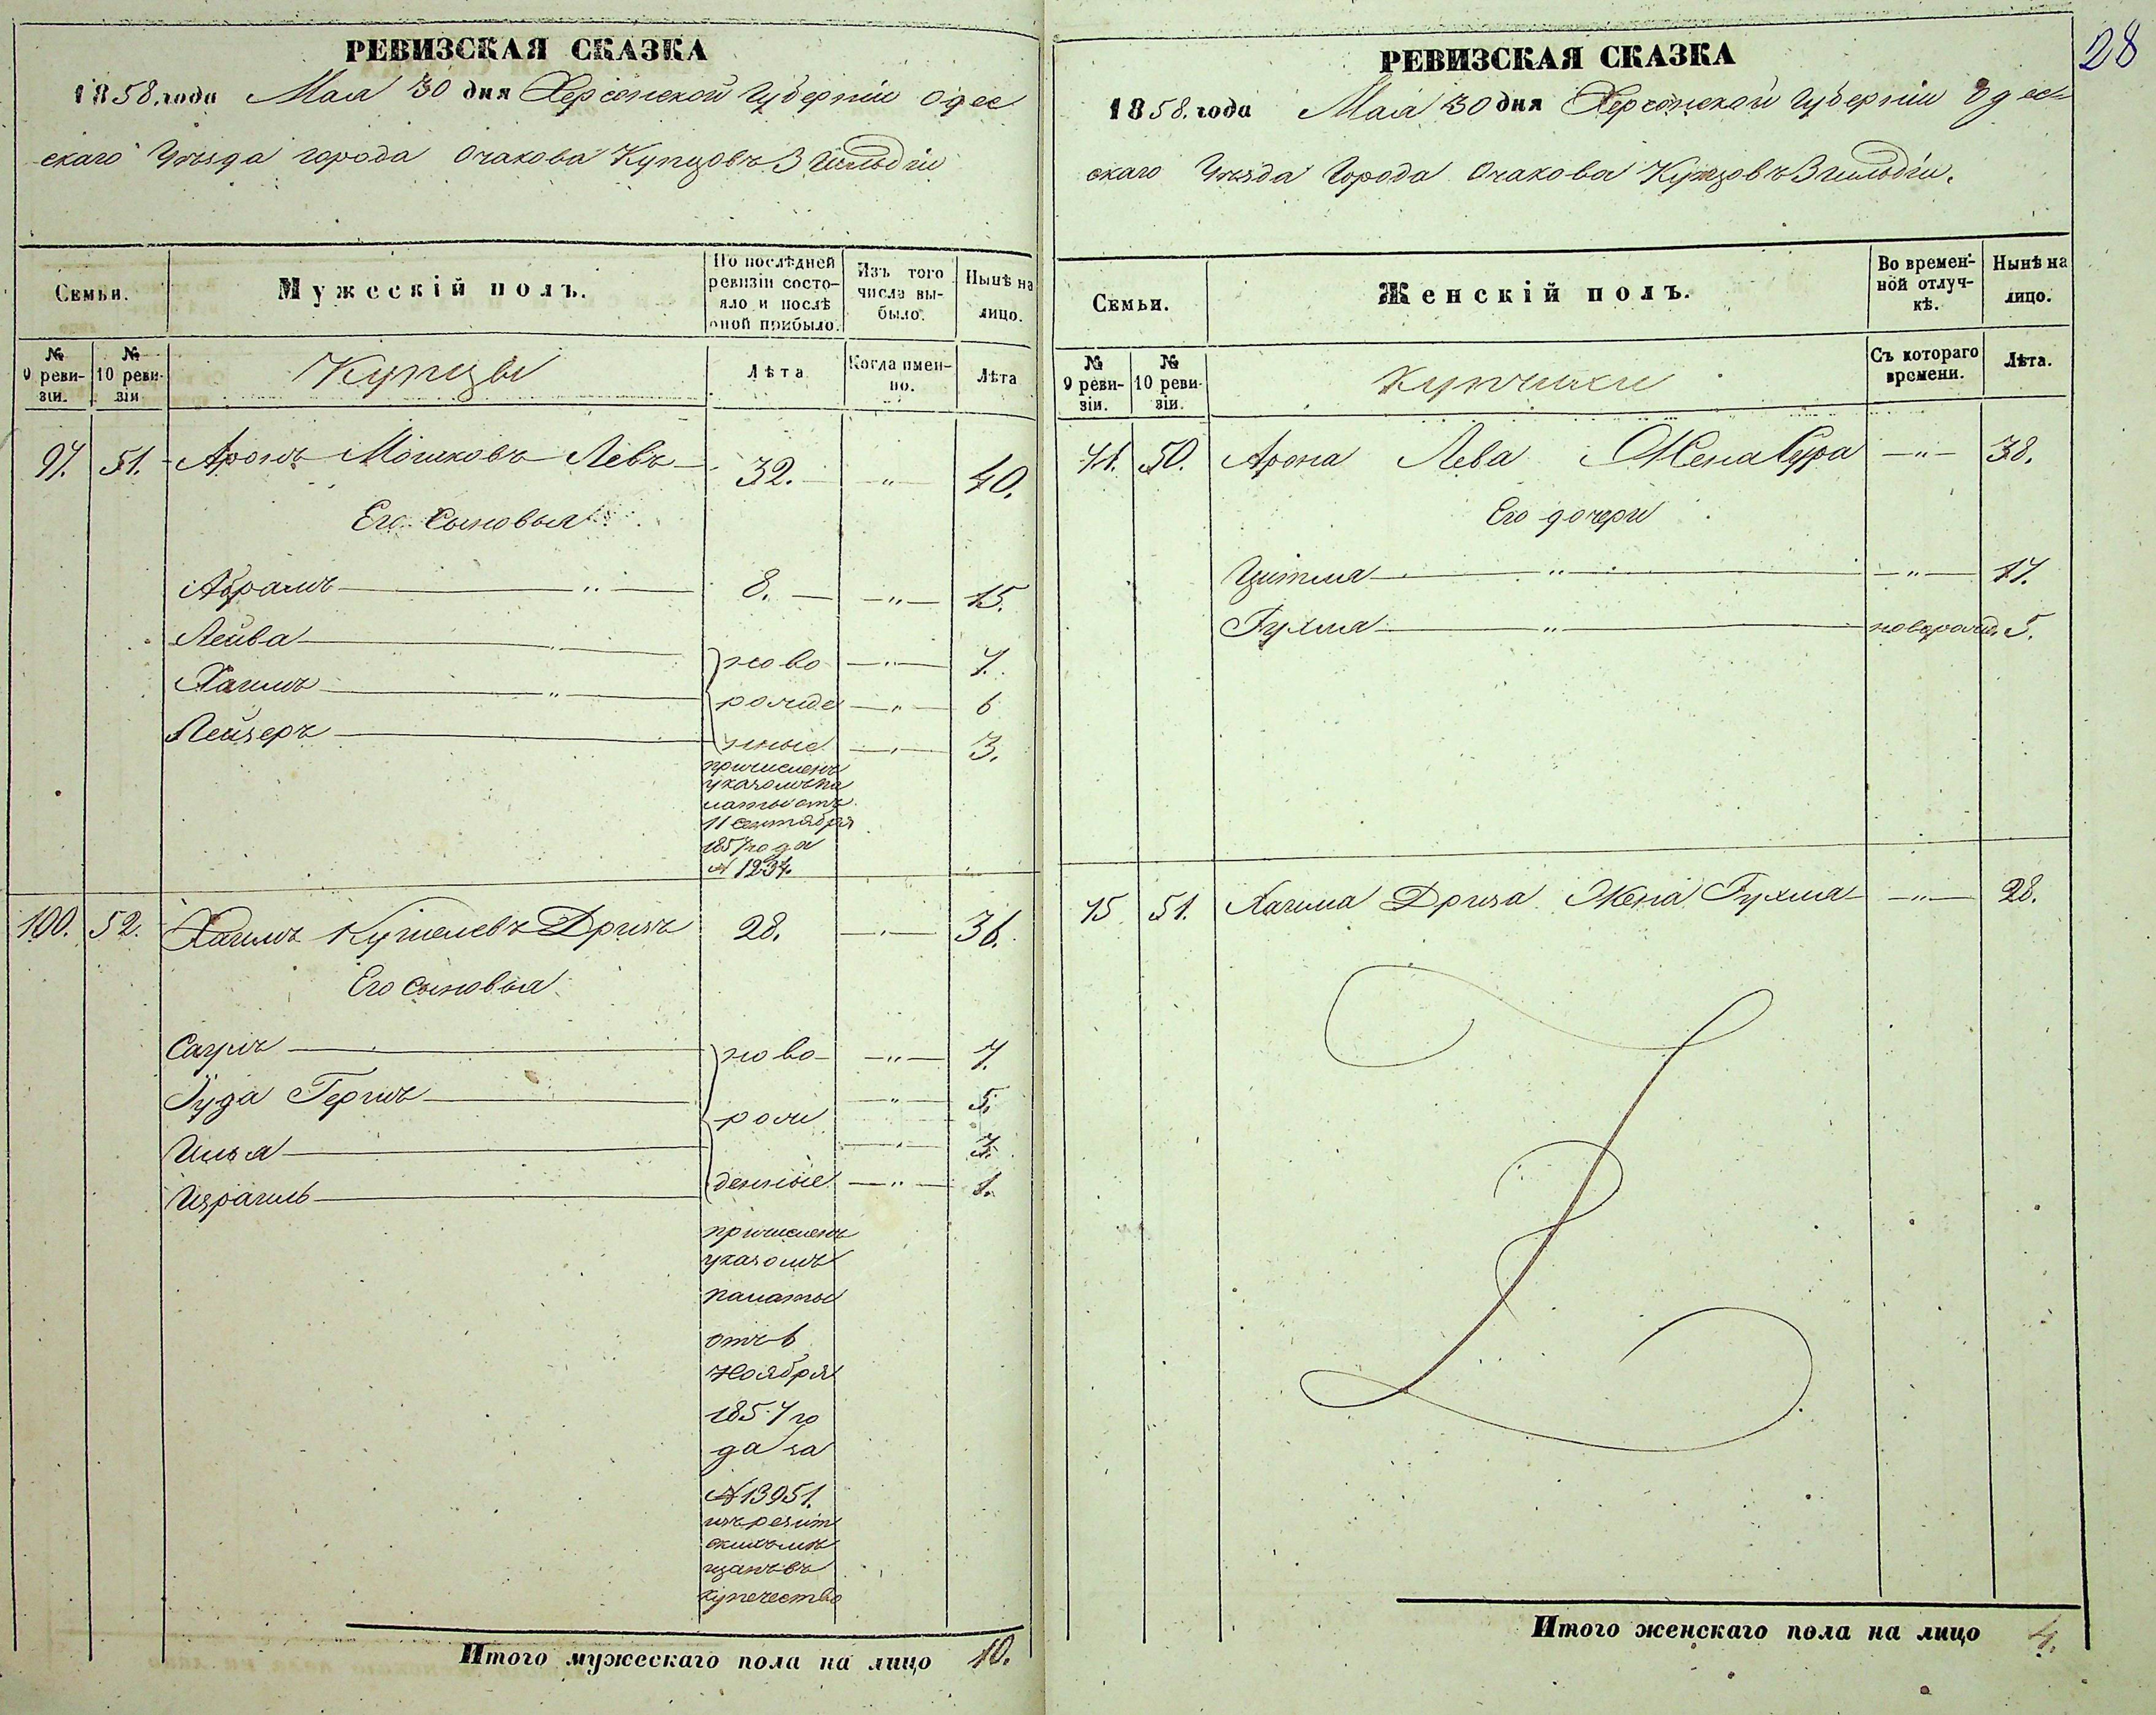 28
РЕВИЗСКАЯ СКАЗКА
1858. года Мая 30 дня Херсонской Губерніи Одес
скаго Уѣзда города Очакова Купцовъ 3 Гильдіи
Семьи.
Мужескій полъ.
По послѣдней ревизіи состояло и послѣ оной прибыло.
Изъ того числа выбыло.
Нынѣ на лицо.
№ 9 ревизіи.
№ 10 ревизіи
Купцы
Лѣта
Когда именно.
Лѣта
51. Аронъ Мошковъ Левъ 32. 40.
Его Сыновья
Абрамъ 8. 15.
Лейба ново 7.
Хаимъ рожде 6
Лейзеръ нные 3.
причисленъ
указомъ па
латы отъ
11 сентября
1857 года
№
100. 52. Хаимъ Дризъ 28. 36.
Его Сыновья
Саулъ ново 7.
Іуда Гершъ 5.
рож
Илья 3.
Израиль денные 1.
причисленъ
указомъ
палаты
отъ 6
Ноября
1857 го
да за
№ 13951.
мѣ
щанъ въ
купечество
Итого мужескаго пола на лицо 10.
РЕВИЗСКАЯ СКАЗКА
1858. года Мая 30 дня Херсонской Губерніи Одес
скаго Уѣзда Города Очакова Купцовъ 3 гильдіи.
Семьи.
Женскій полъ.
Во временной отлучкѣ.
Нынѣ на лицо.
№ 9 ревизіи.
№ 10 ревизіи.
Купчихи
Съ котораго времени.
Лѣта.
50. Арона Лева Жена Сура 38.
Его дочери
17.
Рухля новорожд. 5.
51. Хаима Дриза Жена Рухля 28.
Итого женскаго пола на лицо 4.